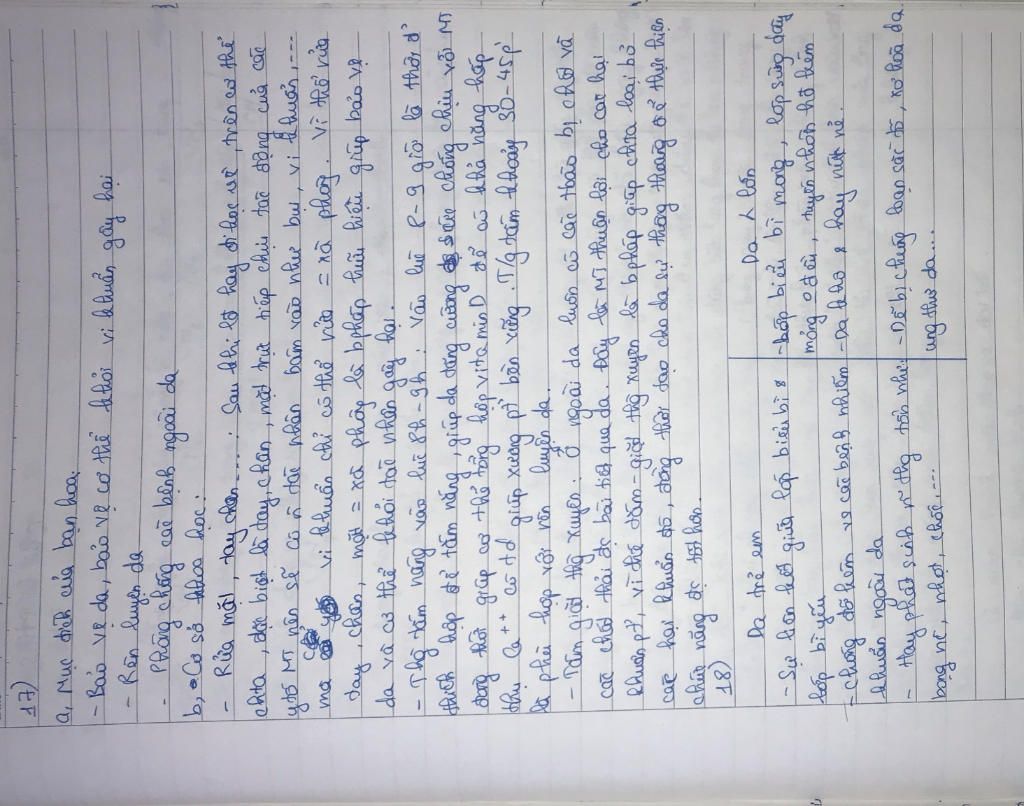 17)
a, Mục đích của bạn hoa:
- Bảo vệ da, bảo vệ cơ thể khỏi vi khuẩn gây hại
- Rèn luyện da
- Phòng chống các bệnh ngoài da
b, Cơ sở khoa học:
- Rửa mặt, tay chân....: Sau khi lđ hay đi học về, trên cơ thể
chta, đặc biệt là tay, chân, mặt trực tiếp chịu tác động của các
ytố MT nên sẽ có n tác nhân bám vào như bụi, vi khuẩn,...
mà vi khuẩn chỉ có thể rửa = xà phòng. Vì thế rửa
tay, chân, mặt = xà phòng là bpháp hữu hiệu giúp bảo vệ
da và cơ thể khỏi tác nhân gây hại.
- Thg tắm nắng vào lúc 8h-9h: Vào lúc 8-9 giờ là thời đ'
thích hợp để tắm nắng, giúp da tăng cường sức chống chịu với MT
đồng thời giúp cơ thể tổng hợp vitamin D để có khả năng hấp
thụ Ca++ có td giúp xương pt' bền vững. T/g tắm khoảng 30-45p'
là phù hợp với rèn luyện da.
- Tắm giặt thg xuyên: Ở ngoài da luôn có các tbào bị chết và
các chất thải đc bài tiết qua da. Đây là MT thuận lợi cho các hại
khuẩn pt', vì thế tắm-giặt thg xuyên là bpháp giúp chta loại bỏ
các hại khuẩn đó, đồng thời tạo cho da sự thông thoáng để thực hiện
chức năng đc tốt hơn.
18)
Da trẻ em | Da ng lớn
- Sự liên kết giữa lớp biểu bì & | - Lớp biểu bì mỏng, lớp sừng dày
lớp bì yếu | mỏng 0 đều, tuyến nhờn hđ kém
- Chống đỡ kém vs các bệnh nhiễm | - Da khô & hay nứt nẻ.
khuẩn ngoài da
- Hay phát sinh n thg tổn như: | - Dễ bị chứng loạn sắc tố, xơ hoá da
bỏng nẻ, nhọt, chốc,... | ung thư da....